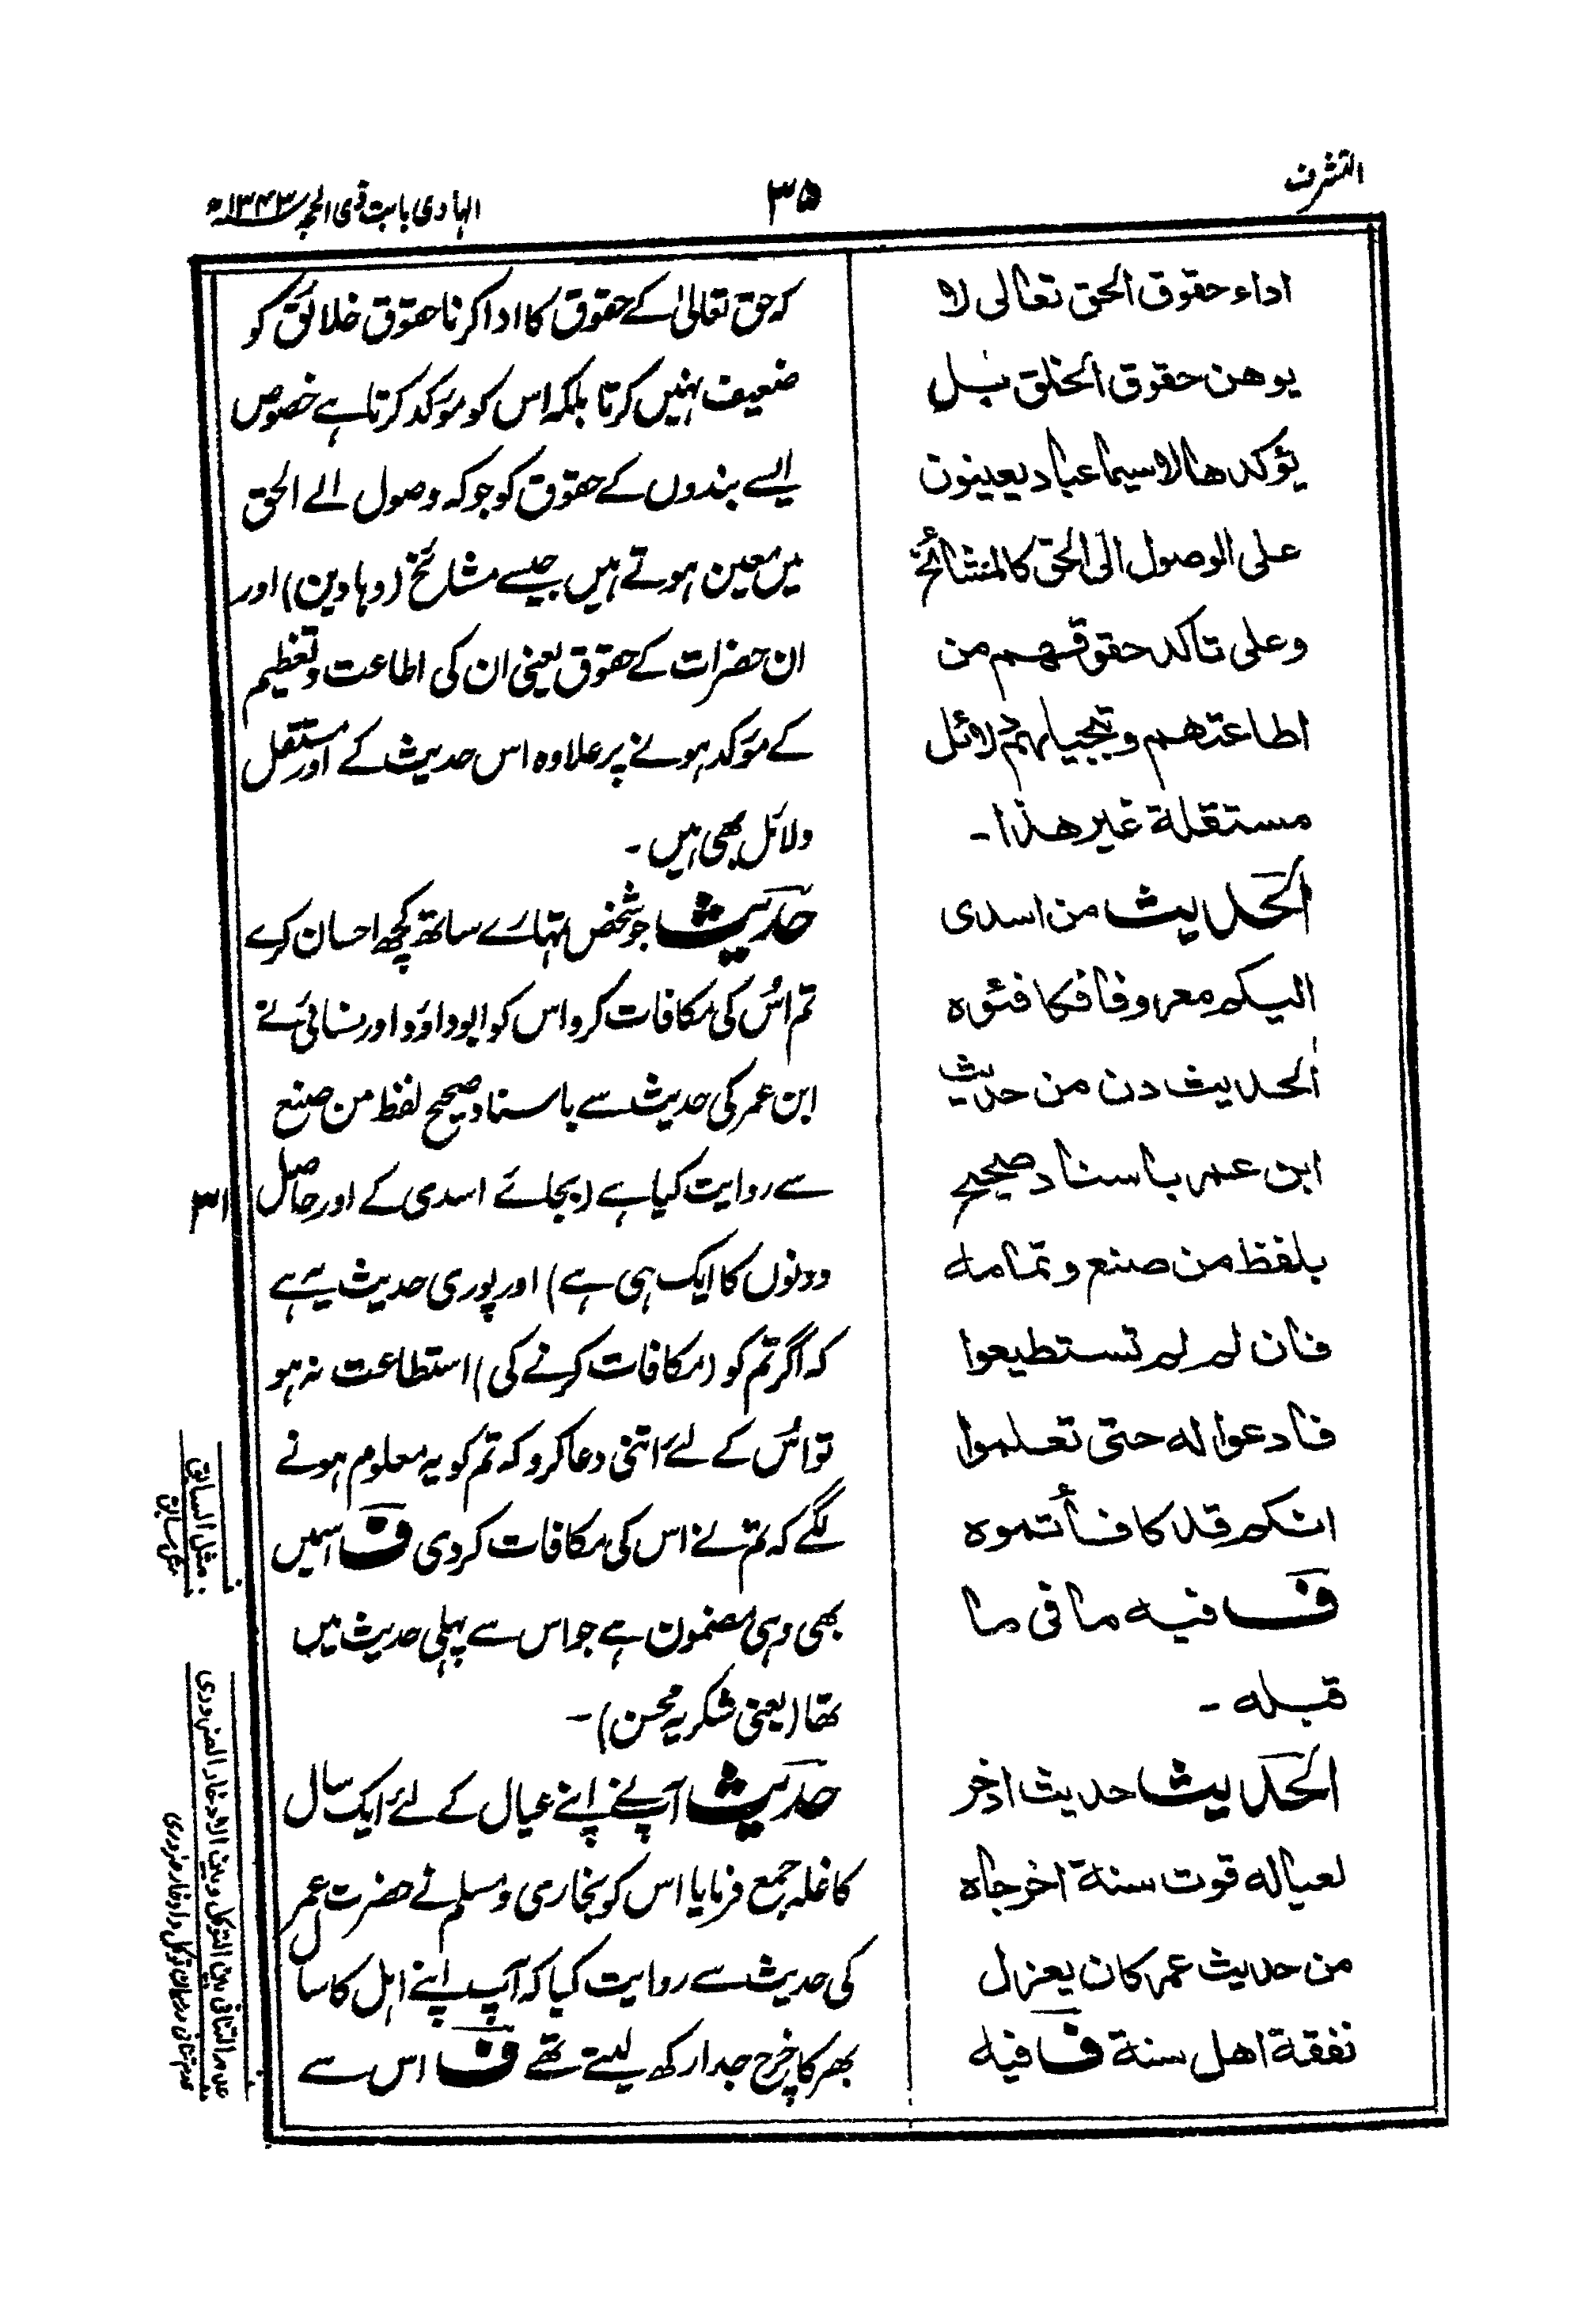 التشرف
۳۵
الہادی بابت ذی الحجہ ۱۳۴۳ھ
اداء حقوق الحق تعالی لا
یوهن حقوق الخلق بل
یؤکدها لاسیما عباد یعینون
علی الوصول الی الحق کالمشائخ
وعلی تاکد حقوقهم من
اطاعتهم وتبجیلهم دلائل
مستقلة غیر هذا ۔
الحدیث من اسدی
الیکم معروفا فکافئوه
الحدیث دن من حدیث
ابن عمر باسناد صحیح
بلفظ من صنع وتمامه
فان لم لم تستطیعوا
فادعوا له حتی تعلموا
انکم قد کافأتموه
ف فیه ما فی ما
قبله ۔
الحدیث حدیث ادخر
لعیاله قوت سنة اخرجاه
من حدیث عمر کان یعزل
نفقة اهل سنة ف فیه
کہ حق تعالیٰ کے حقوق کا ادا کرنا حقوق خلائق کو
ضعیف نہیں کرتا بلکہ اس کو موَکد کرتا ہے خصوص
ایسے بندوں کے حقوق کو جو کہ وصول الے الحق
میں معین ہوتے ہیں جیسے مشائخ (وہادین) اور
ان حضرات کے حقوق یعنی ان کی اطاعت وتعظیم
کے موَکد ہونے پر علاوہ اس حدیث کے اور مستقل
دلائل بھی ہیں ۔
حدیث جو شخص تمہارے ساتھ کچھ احسان کرے
تم اسُ کی مکافات کرو اس کو ابوداوَد اور نسائی نے
ابن عمر کی حدیث سے باسناد صحیح لفظ من صنع
سے روایت کیا ہے (بجائے اسدی کے اور حاصل
دونوں کا ایک ہی ہے) اور پوری حدیث یہ ہے
کہ اگر تم کو (مکافات کرنے کی) استطاعت نہ ہو
تو اسُ کے لئے اتنی دعا کرو کہ تم کو یہ معلوم ہونے
لگے کہ تم نے اس کی مکافات کردی ف اسمیں
بھی وہی مضمون ہے جو اس سے پہلی حدیث میں
تھا (یعنی شکریہ محسن) ۔
حدیث آپنے اپنے عیال کے لئے ایک سال
کا غلہ جمع فرمایا اس کو بخاری ومسلم نے حضرت عمر
کی حدیث سے روایت کیا کہ آپ اپنے اہل کا سال
بھر کا خرچ جدا رکھ لیتے تھے ف اس سے
۳۱
مثل السابق
مثل سابق
عدم التنافی بین التوکل وبین الادخار الضروری
عدم تنافی درمیان توکل و ادخار ضروری